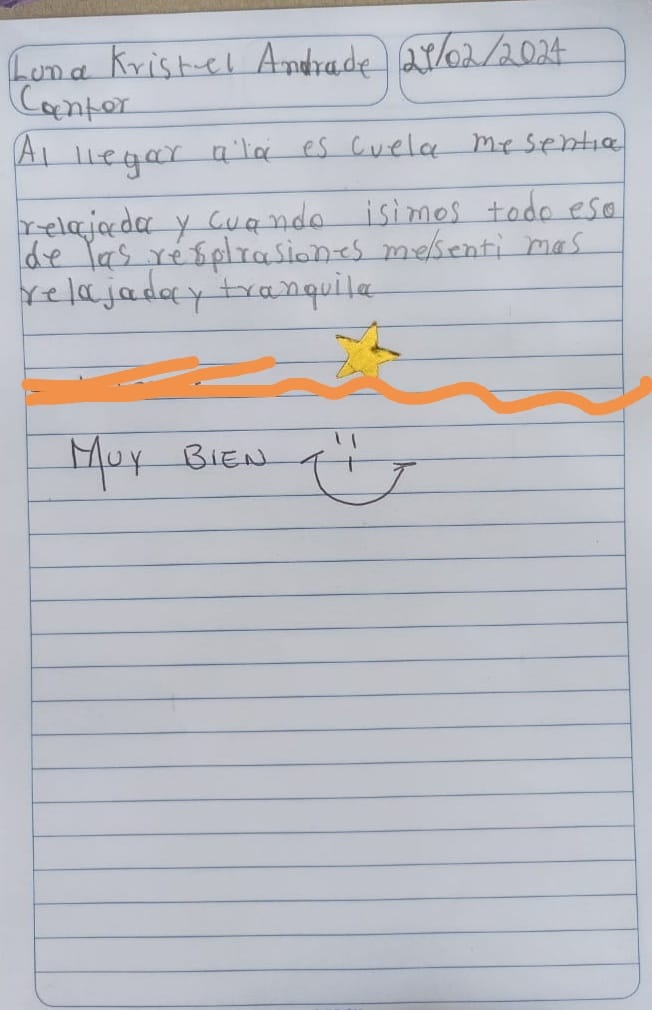 Luna Kristel Andrade
Cantor
29/02/2024
Al llegar a la es cuela me sentia
relajada y cuando isimos todo eso
de las respirasiones me senti mas
relajada y tranquila
MUY BIEN